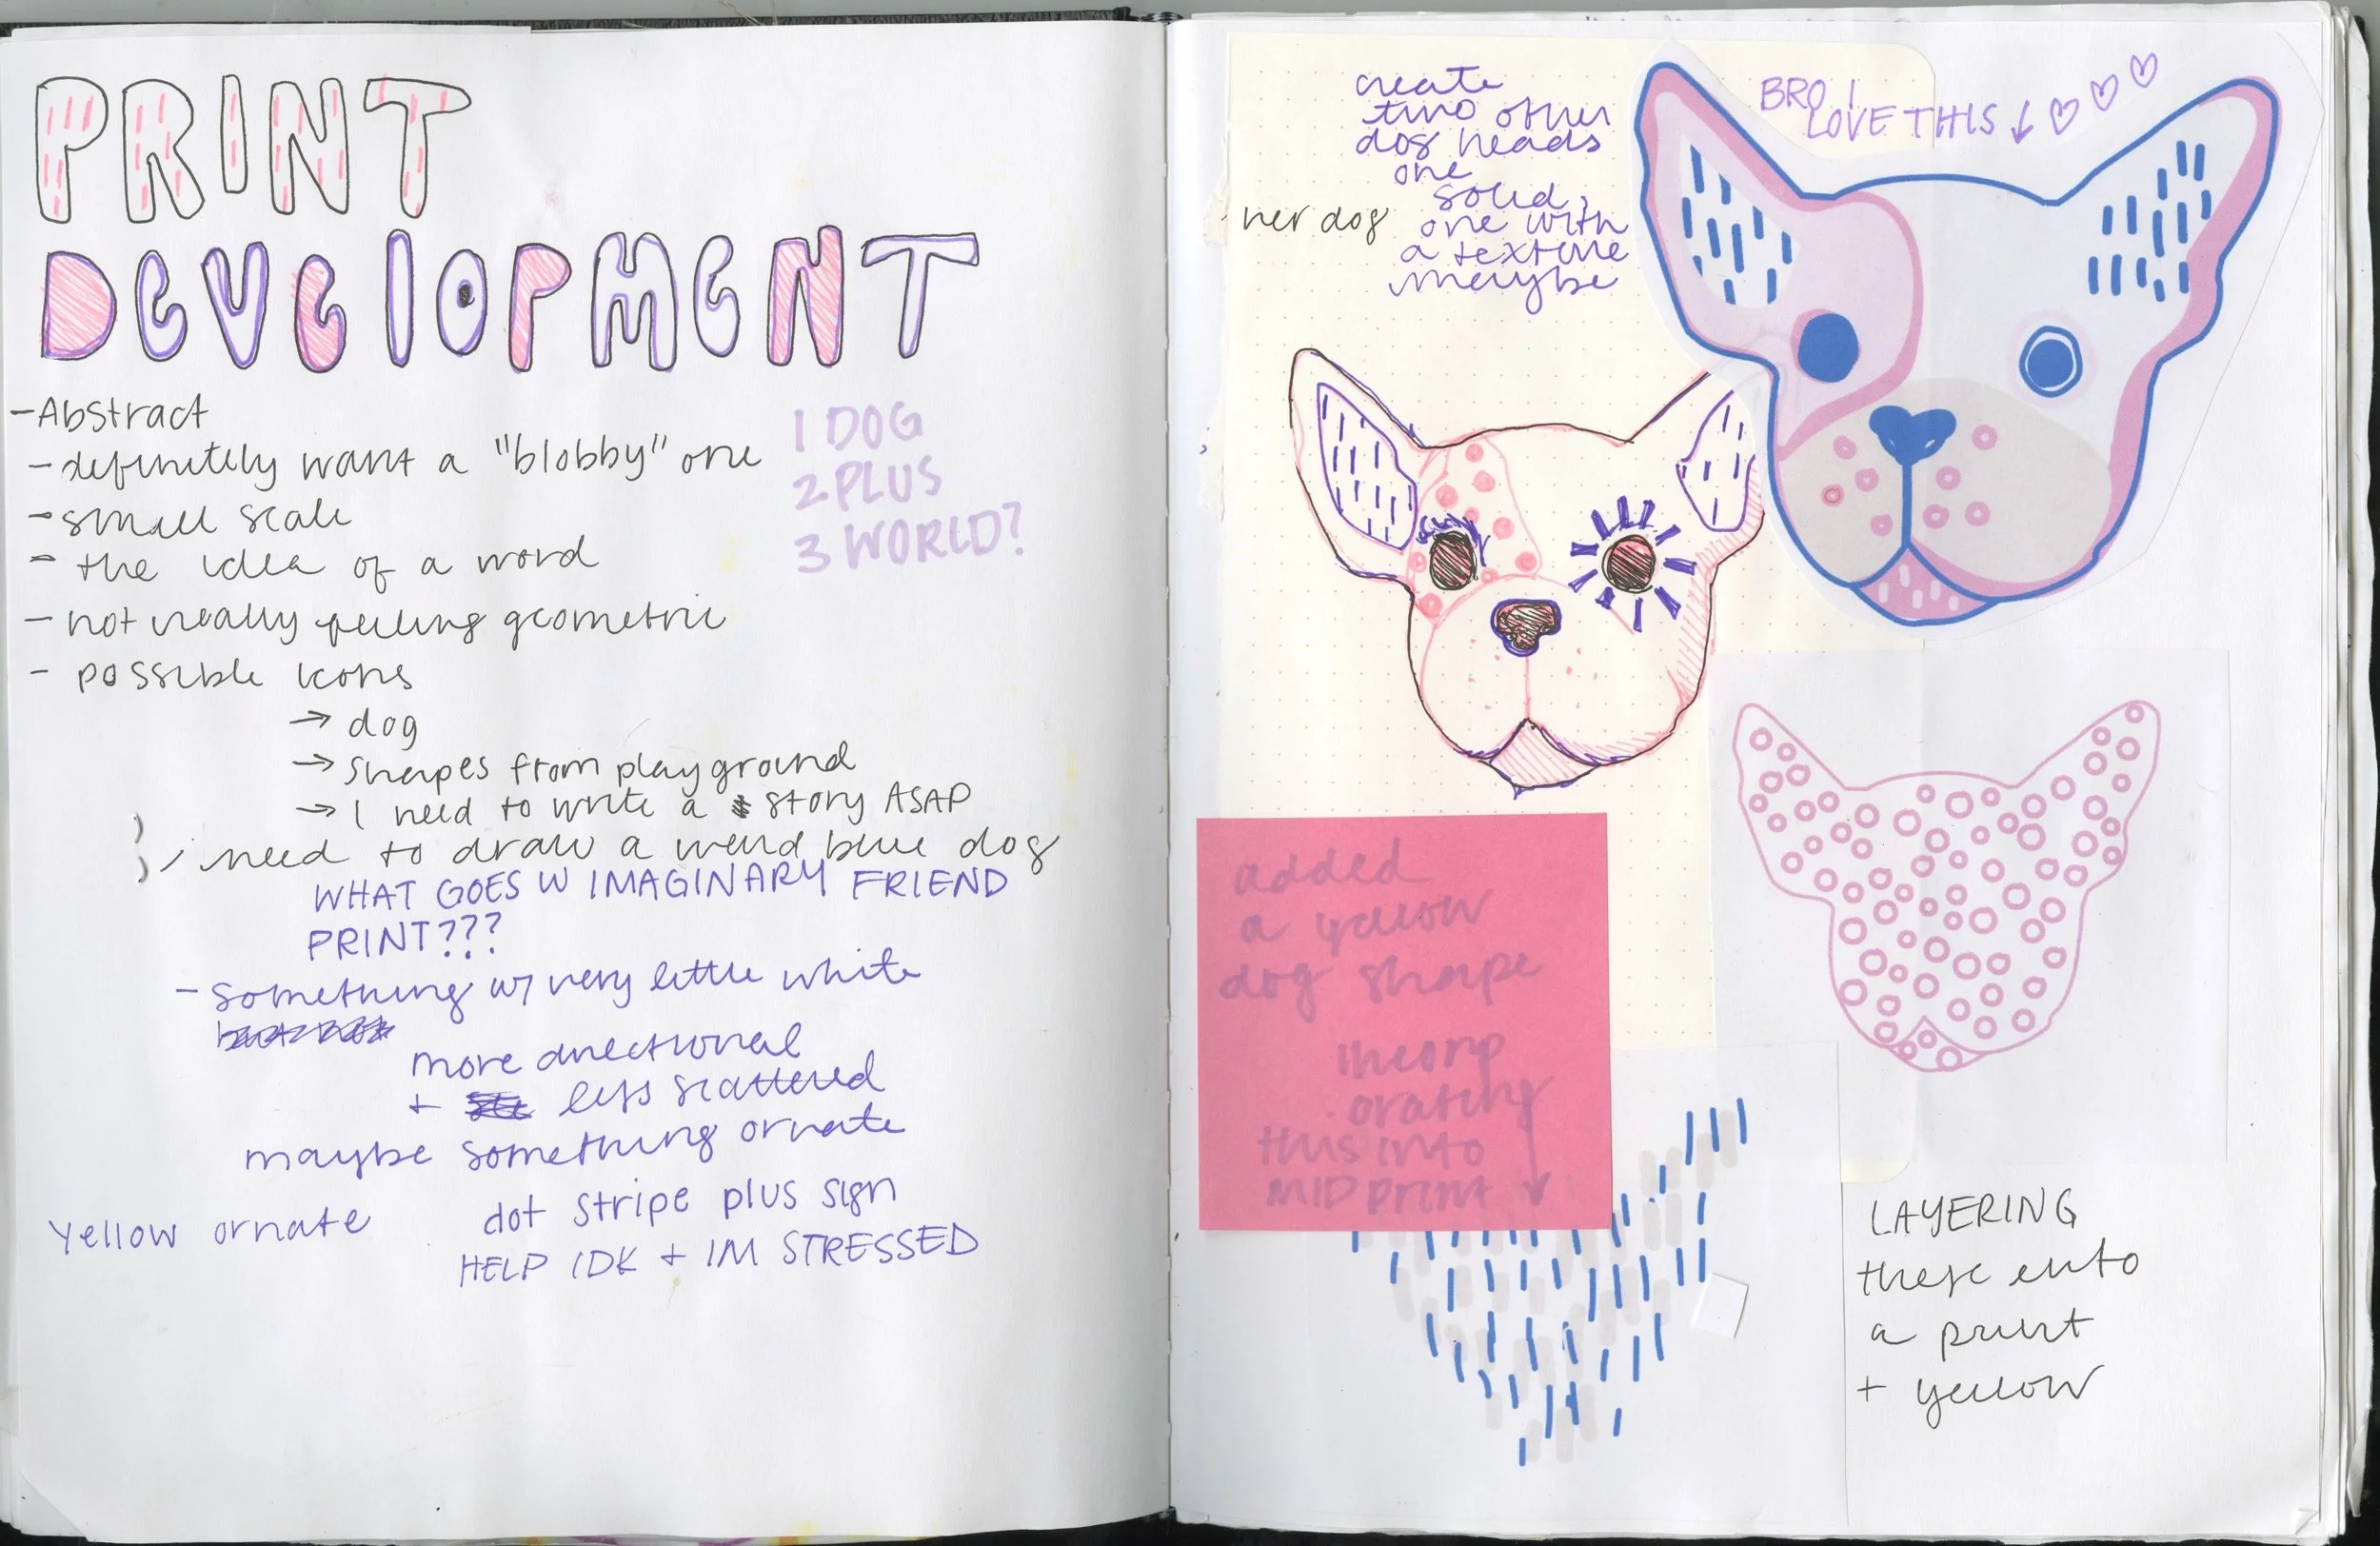 PRINT
DEVELOPMENT
- Abstract
- definitely want a "blobby" one
- small scale
- the idea of a word
- not really feeling geometric
- possible icons
→ dog
→ shapes from playground
→ I need to write a story ASAP
need to draw a weird blue dog
1 DOG
2 PLUS
3 WORLD?
WHAT GOES W IMAGINARY FRIEND
PRINT???
- something w/ very little white
more directional
+ less scattered
maybe something ornate
Yellow ornate
dot stripe plus sign
HELP IDK + IM STRESSED
create
two other
dog heads
one
solid,
one with
a texture
maybe
her dog
BRO I
LOVE THIS ↓ ♡ ♡ ♡
added
a yellow
dog shape
incorp
orating
this into
MID print ↓
LAYERING
these into
a print
+ yellow